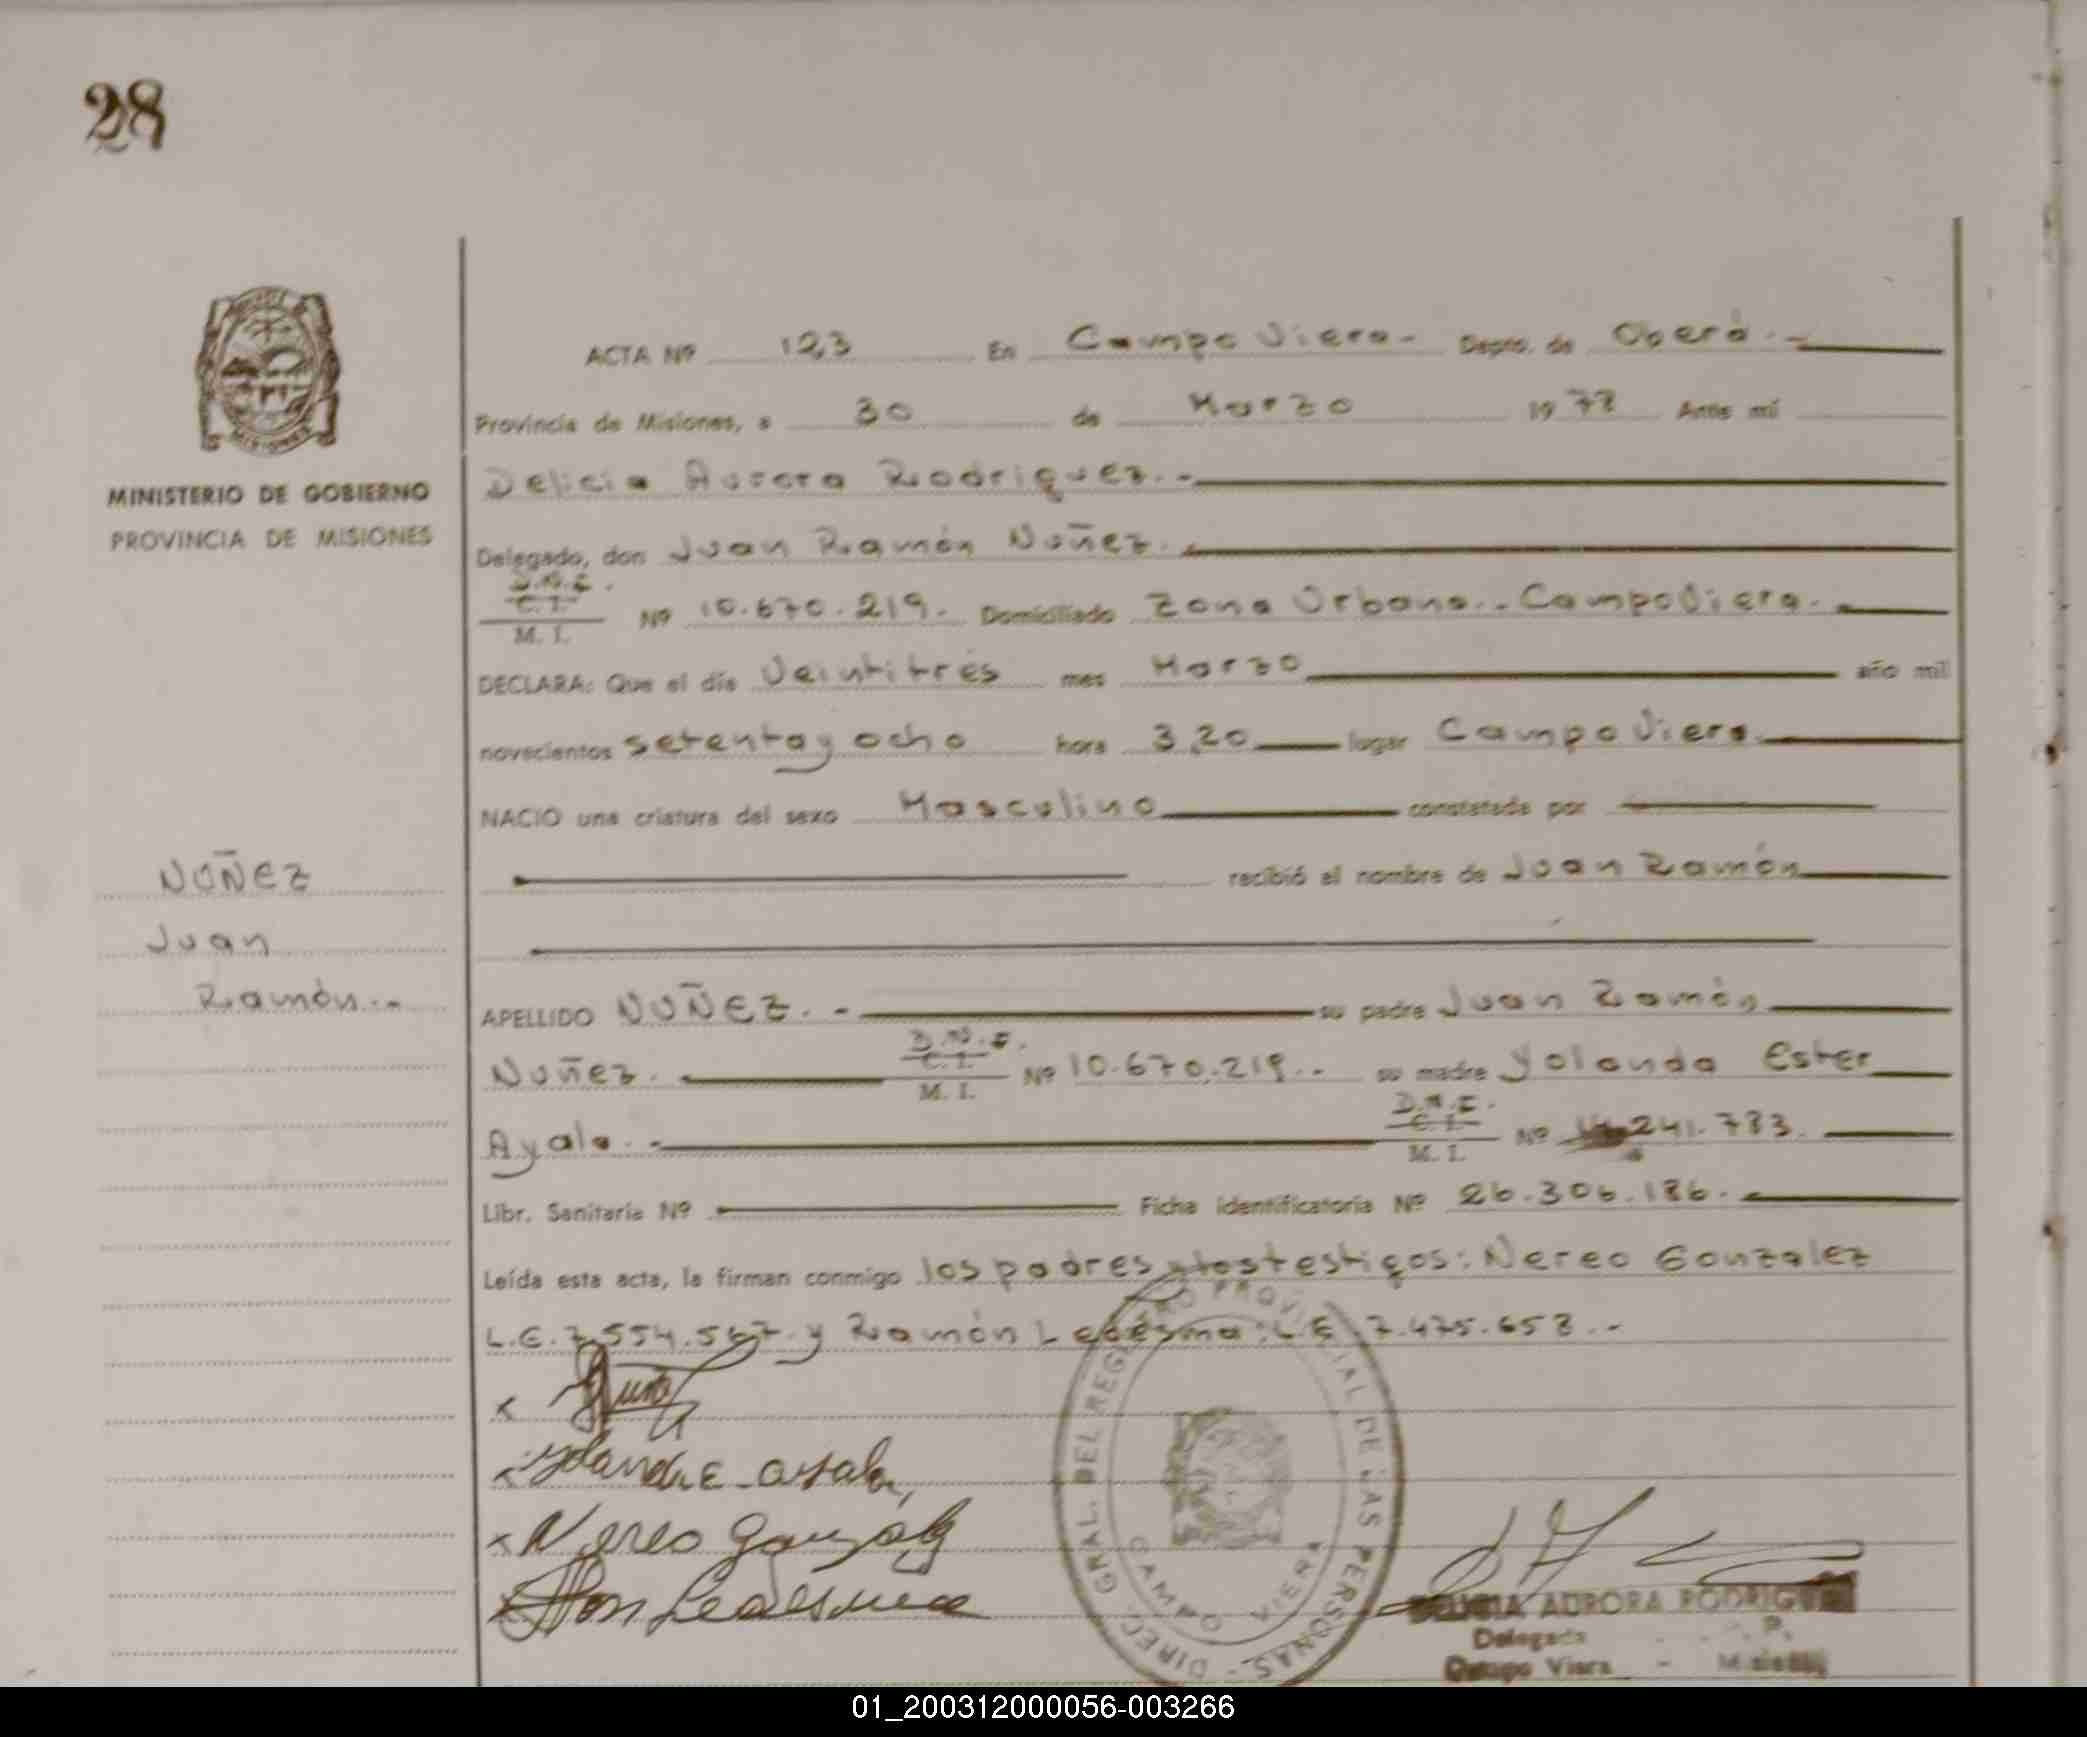 28
ACTA Nº 123 En Campo Viera.- Depto. de Oberá.-
Provincia de Misiones, a 30 de Marzo 1978 Ante mí
Delicia Aurora Rodriguez.-
MINISTERIO DE GOBIERNO
PROVINCIA DE MISIONES
Delegado, don Juan Ramón Nuñez.
D.N.I.
C. I.
M. I.
Nº 10.670.219. Domiciliado Zona Urbana.- Campo Viera.
DECLARA: Que el día Veintitrés mes Marzo año mil
novecientos setenta y ocho hora 3,20 lugar Campo Viera.
NACIO una criatura del sexo Masculino constatada por
recibió el nombre de Juan Ramón
NUÑEZ
Juan
Ramón.-
APELLIDO NUÑEZ.- su padre Juan Ramón
D.N.I.
C. I.
M. I.
Nuñez. Nº 10.670.219.- su madre Yolanda Ester
D.N.I.
C. I.
M. I.
Ayala.- Nº 241.783.
Libr. Sanitaria Nº Ficha identificatoria Nº 26.306.186.
Leída esta acta, la firman conmigo los padres y los testigos: Nereo Gonzalez
L.E. 7.554.567. y Ramón Ledesma: L.E 7.475.658.-
x
x Yolanda E. Ayala
x Nereo González
x Ramon Ledesma
DIREC. GRAL. DEL REGISTRO PROVINCIAL DE LAS PERSONAS.-
CAMPO VIERA
DELICIA AURORA RODRIGUEZ
Delegada
Campo Viera - Misiones
01_200312000056-003266